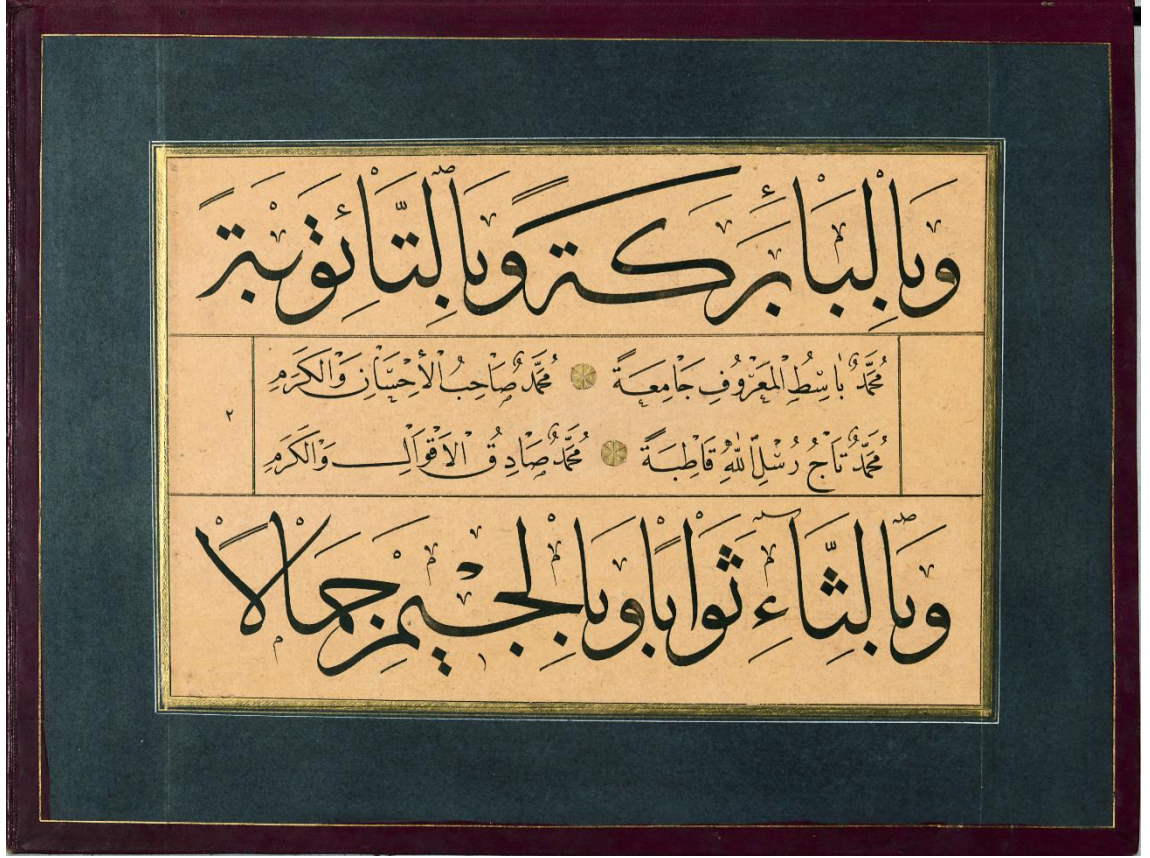 وَبِالْبَاءِ بَرَكَةً وَبِالتَّاءِ تَوْبَةً
مُحَمَّدٌ بَاسِطُ الْمَعْرُوفِ جَامِعَةً مُحَمَّدٌ صَاحِبُ الْأِحْسَانِ وَالْكَرَمِ
٢
مُحَمَّدٌ تَاجُ رُسْلِ اللّٰهِ قَاطِبَةً مُحَمَّدٌ صَادِقُ الْاَقْوَالِ وَالْكَرَمِ
وَبِالثَّآءِ ثَوَابًا وَبِالْجِيمِ جَمَالًا